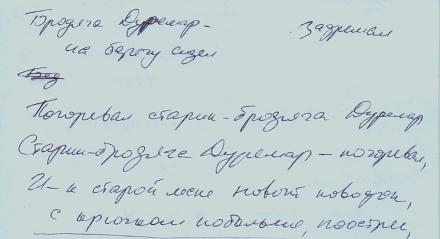 Бродяга Дуремар -
Задремал
на берегу сидел
Погоревал старик-бродяга Дуремар
Старик-бродяга Дуремар - погоревал,
И - к старой леске новый поводок,
с крючком побольше, поострее,